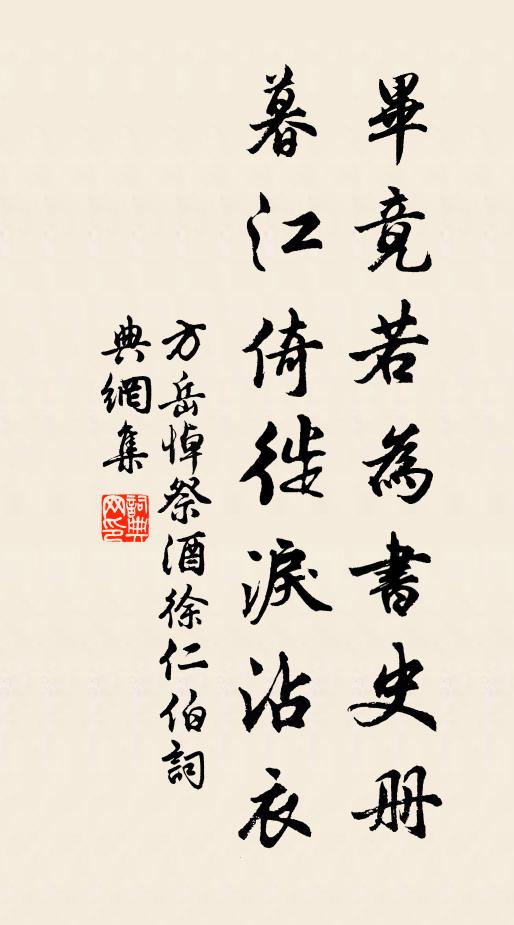 畢竟若為書史冊
暮江倚徙淚沾衣
方岳悼祭酒徐仁伯詞
典網集
詞典
网印